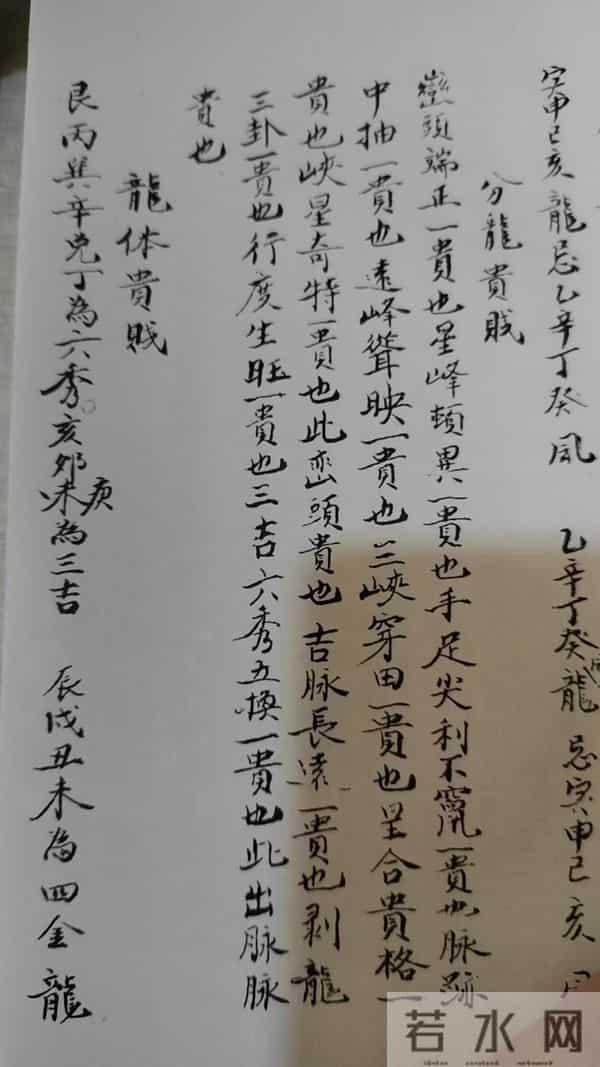 寅申巳亥龍忌乙辛丁癸風 乙辛丁癸龍忌寅申巳亥風
分龍貴賎
巒頭端正一貴也星峰頓異一貴也手足尖利不竄一貴也脉跡
中抽一貴也遠峰聳映一貴也三峽穿田一貴也呈合貴格一
貴也峽星奇特一貴也此巒頭貴也吉脉長遠一貴也剥龍
三卦一貴也行度生旺一貴也三吉六秀五換一貴也此出脉脉
貴也
龍体貴賎
艮丙巽辛兌丁為六秀。亥卯未庚為三吉 辰戌丑未為四金龍
若水网